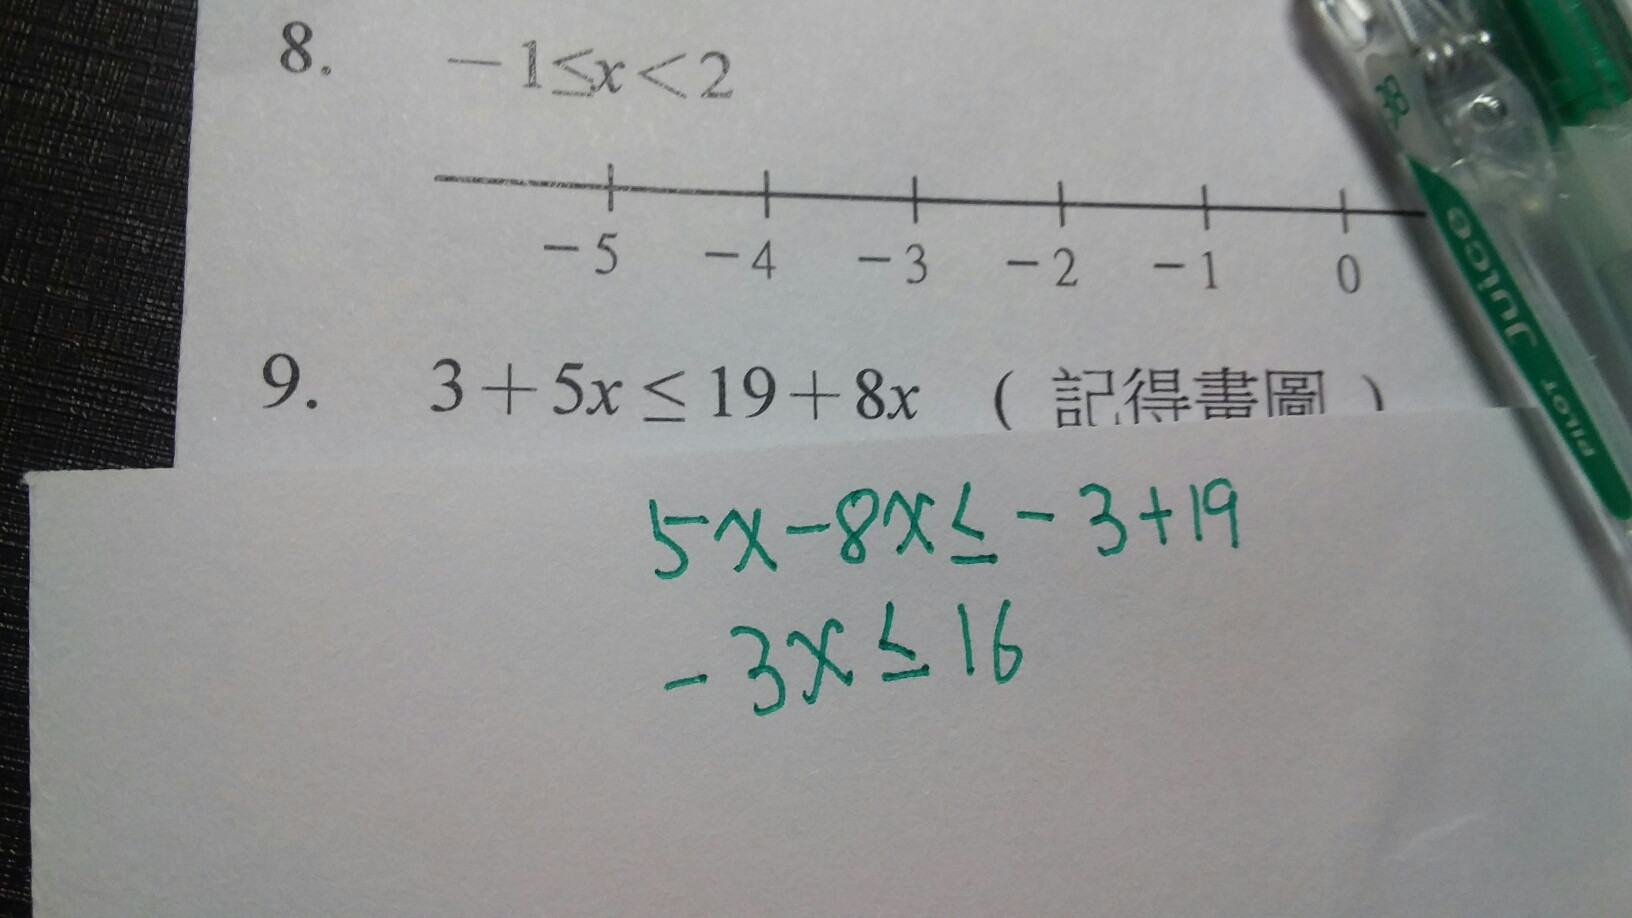 8. －1≤x＜2
－5 －4 －3 －2 －1 0
9. 3＋5x≤19＋8x （記得畫圖）
5x-8x≤-3+19
-3x≤16
38
Juice
PILOT